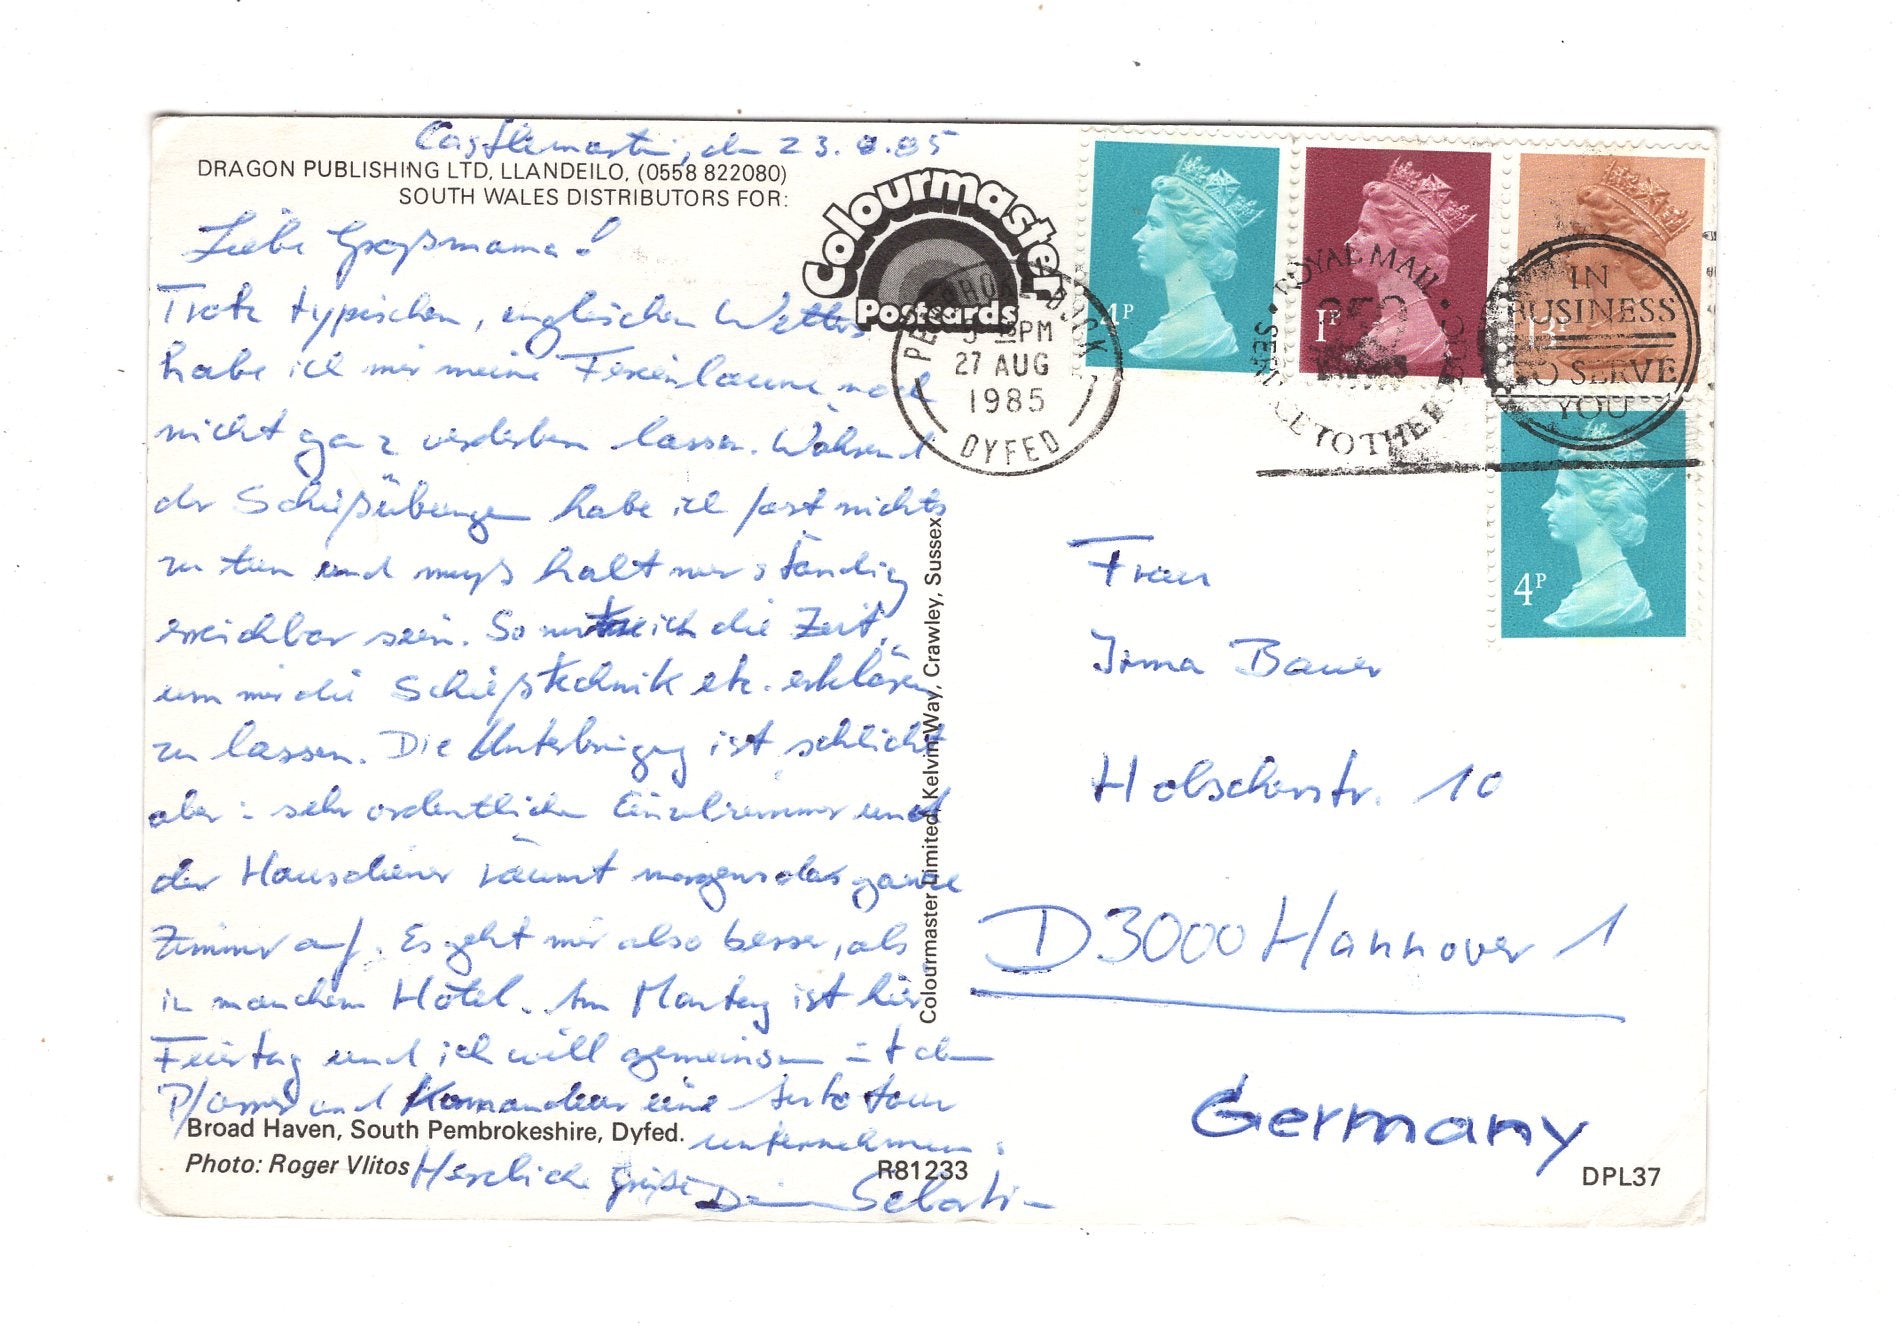 Castlemartin, den 23.8.85
DRAGON PUBLISHING LTD, LLANDEILO, (0558 822080)
SOUTH WALES DISTRIBUTORS FOR:
Colourmaster
Postcards
Liebe Großmama!
Trotz typischen, englischen Wetters
habe ich mir meine Ferienlaune noch
nicht ganz verderben lassen. Während
der Schießübungen habe ich fast nichts
zu tun und muß halt nur ständig
erreichbar sein. So nutze ich die Zeit,
um mir die Schießtechnik etc. erklären
zu lassen. Die Unterbringung ist schlicht
aber: sehr ordentliche Einzelzimmer und
der Hausdiener räumt morgens das ganze
Zimmer auf. Es geht mir also besser, als
in manchem Hotel. Am Montag ist hier
Feiertag und ich will gemeinsam mit dem
Pfarrer und Komandeur eine Autotour
unternehmen.
Herzliche Grüße Dein Sebastian
Broad Haven, South Pembrokeshire, Dyfed.
Photo: Roger Vlitos
R81233
Colourmaster Limited, Kelvin Way, Crawley, Sussex
4P
1P
13P
4P
PEMBROKE DOCK
PM
27 AUG
1985
DYFED
ROYAL MAIL
350
SERVICE TO THE PUBLIC
IN
BUSINESS
TO SERVE
YOU
Frau
Irma Bauer
Holscherstr. 10
D 3000 Hannover 1
Germany
DPL37